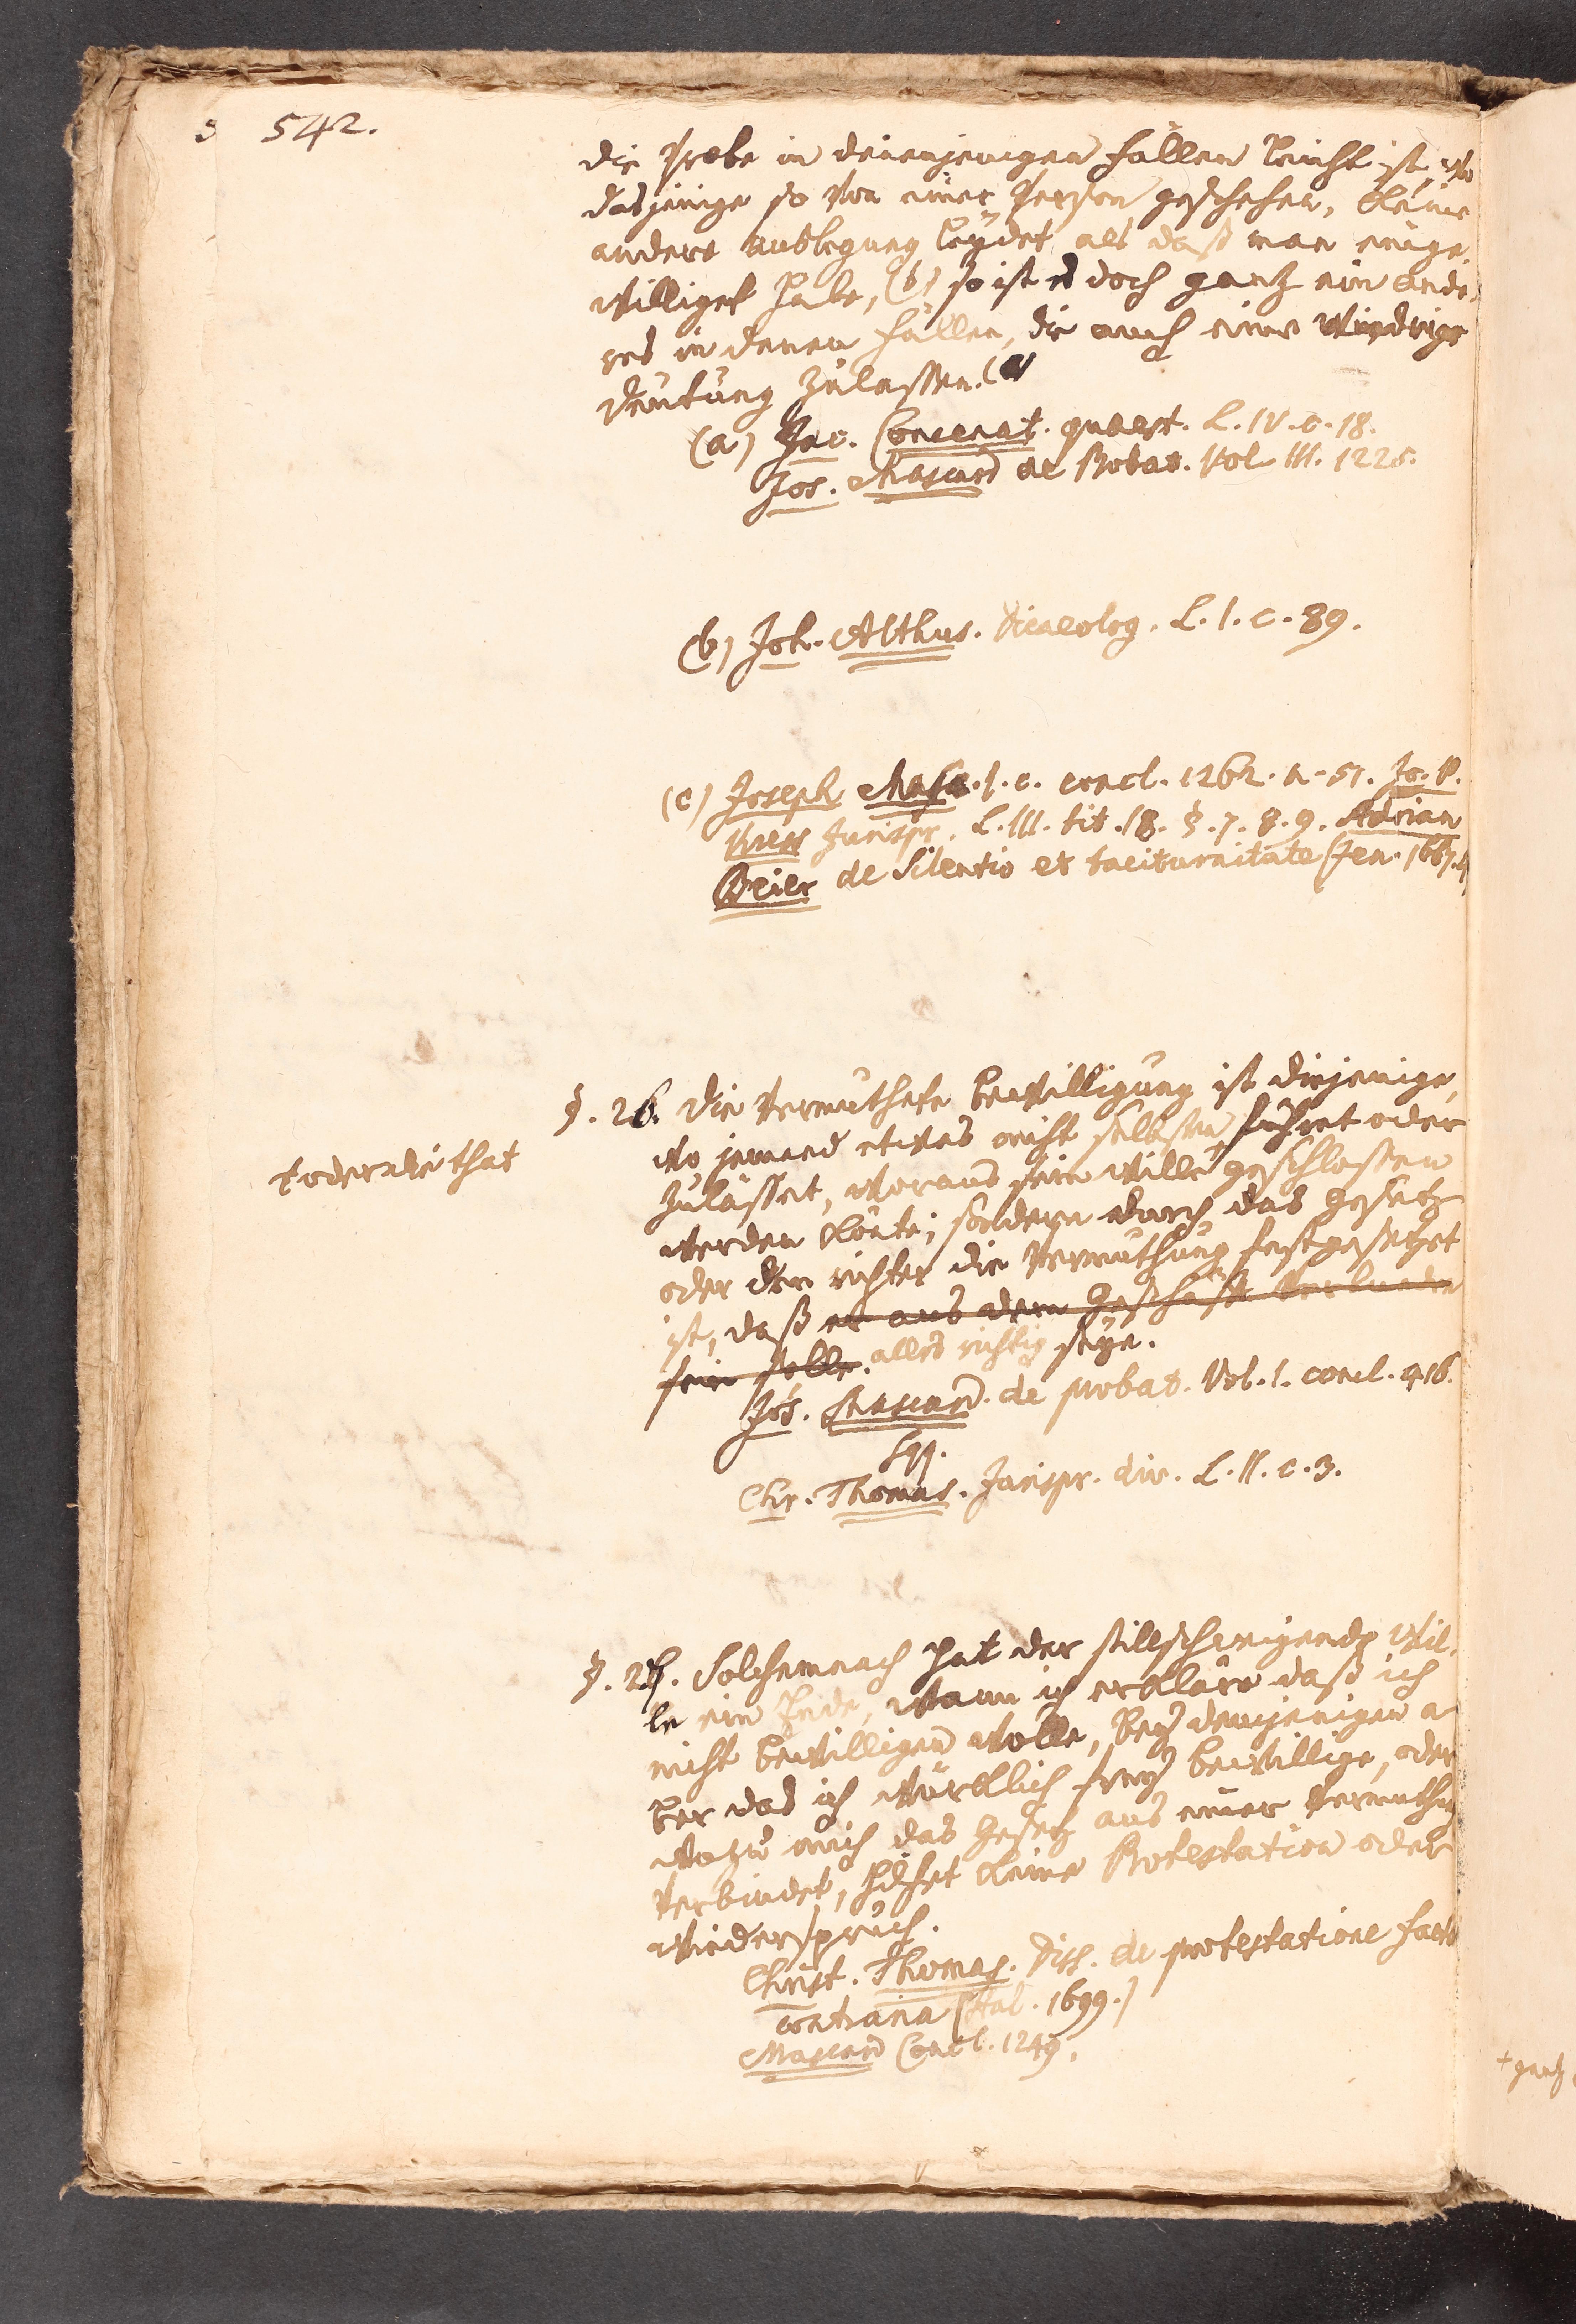 542.
die Probe in denenjenigen fällen leicht ist, wo
dasjenige so von einer Person geschehen, keine
andere auslegung leydet als daß man einge-
williget habe, (b) so ist es doch gantz ein ande-
res in denen fällen, die auch eine wiedrige
deutung zulassen. (c)
(a) Jac. Concenat. quaest. L. IV. c. 18.
Jos. Mascard de Probat. Vol. III. 1225.
(b) Joh. Althus. Dicaeolog. L. I. c. 89.
(c) Joseph Masc. l. c. concl. 1262. n. 51. Jo. P.
Kress Jurispr. L. III. tit. 18. §. 7. 8. 9. Adrian
Beier de Silentio et taciturnitate (Jen. 1667. 4)
§. 26. Die vermuthete bewilligung ist diejenige,
wo jemand etwas nicht selbsten führet oder
† oder die that
zulässet, woraus sein wille geschlossen
werden könte; sondern durch das Gesetz
oder den richter die vermuthung festgesetzet
ist, daß er aus dem Geschäft verbunden
sein solle. alles richtig seye.
Jos. Mascard. de probat. Vol. I. concl. 416.
sqq.
Chr. Thomas. Jurispr. div. L. II. c. 3.
§. 27. Solchemnach hat der stillschweigende Wil-
le ein Ende, wann ich erkläre daß ich
nicht bewilligen wolle, Bey demjenigen a-
ber das ich würcklich frey bewillige, oder
wozu mich das Gesetz aus einer Vermuthung
verbindet, hilfet keine Protestation oder
wiederspruch.
Christ. Thomas. Diss. de protestatione facto
contraria (Hal. 1699.)
Mascard Concl. 1249.
† gantz